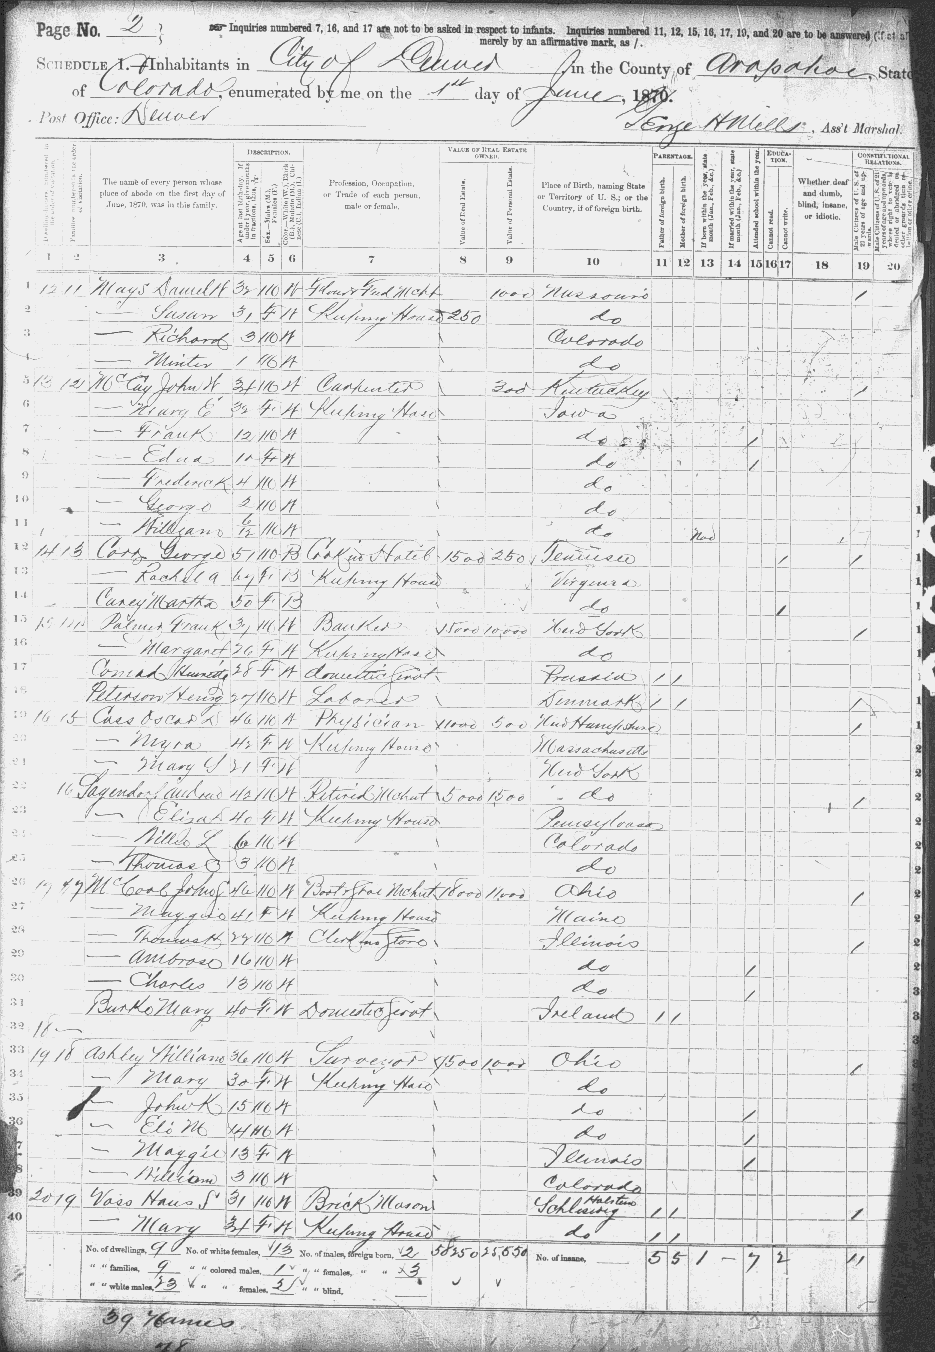 Page No. 2
Inquiries numbered 7, 16, and 17 are not to be asked in respect to infants. Inquiries numbered 11, 12, 15, 16, 17, 19, and 20 are to be answered (if at all)
merely by an affirmative mark, as /.
Schedule 1.—Inhabitants in City of Denver, in the County of Arapahoe, State
of Colorado, enumerated by me on the 1st day of June, 1870.
Post Office: Denver George H Mills, Ass't Marshal.
DESCRIPTION. VALUE OF REAL ESTATE OWNED. PARENTAGE. EDUCATION. CONSTITUTIONAL RELATIONS.
The name of every person whose place of abode on the first day of June, 1870, was in this family.
Profession, Occupation, or Trade of each person, male or female.
Value of Real Estate.
Value of Personal Estate.
Place of Birth, naming State or Territory of U. S.; or the Country, if of foreign birth.
Father of foreign birth.
Mother of foreign birth.
Attended school within the year.
Cannot read.
Cannot write.
Whether deaf and dumb, blind, insane, or idiotic.
1 2 3 4 5 6 7 8 9 10 11 12 13 14 15 16 17 18 19 20
1 12 11 Mays Daniel W 32 M W 1000 Missouri /
2 — Susan 31 F W Keeping House 250 do
3 — Richard 3 M W Colorado
4 — Minter 1 M W do
5 13 12 McCay John W 34 M W Carpenter 300 Kentuckey /
6 — Mary E 32 F W Keeping House Iowa
7 — Frank 12 M W do /
8 — Edna 10 F W do /
9 — Frederick 4 M W do
10 — George 2 M W do
11 — William 6/12 M W do Nov
12 14 13 George 51 M B Cook in Hotel 1500 250 Tennesee / /
13 — Rachel A F B Keeping House Virginia
14 Carey Martha 50 F B do /
15 15 14 Palmer Frank M W Banker 15000 10,000 New York /
16 — Margaret 26 F W Keeping House do
17 Conrad 28 F W domestic Servt Prussia / /
18 Peterson Henry 27 M W Laborer Denmark / / /
19 16 15 Cass Oscar D 46 M W Physician 11000 500 New Hampshire /
20 — Myra 42 F W Keeping House Massachusetts
21 — Mary S 21 F W New York
22 16 Sagendorf Andrew 42 M W Retired Mchnt 5000 1500 do /
23 — Elizab 40 F W Keeping House Pennsylvania
24 — Willie L 6 M W Colorado
25 — Thomas O 3 M W do
26 17 17 McCool John 46 M W Boot & Shoe Mchnt 18000 11000 Ohio /
27 — Maggie 41 F W Keeping House Maine
28 — Thomas H 22 M W Clerk in Store Illinois /
29 — Ambrose 16 M W do /
30 — Charles 13 M W do /
31 Burk Mary 40 F W Domestic Servt Ireland / /
32 18 —
33 19 18 Ashley William 36 M W Surveyor 7500 1000 Ohio /
34 — Mary 30 F W Keeping House do
35 — John K 15 M W do /
36 — Eli M 14 M W do /
37 — Maggie 13 F W Illinois /
38 — William 3 M W Colorado
39 20 19 Voss Hans J 31 M W Brick Mason Schleswig Holstein / / /
40 — Mary 34 F W Keeping House do / /
No. of dwellings, 9 No. of white females, 13 No. of males, foreign born, 2 58250 25,550 No. of insane, 5 5 1 – 7 2 11
" " families, 9 " " colored males, 1 " " females, " " 3
" " white males, 23 " " " females, 2 " " blind,
39 Names